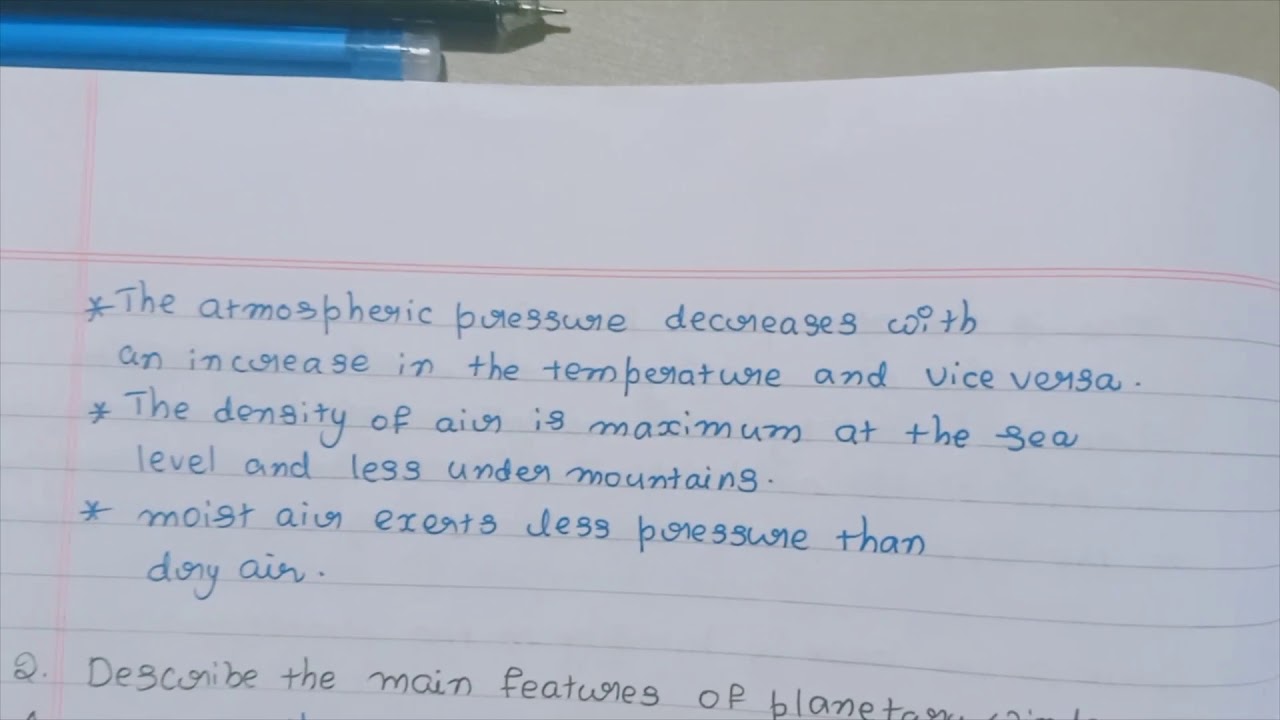 * The atmospheric pressure decreases with
an increase in the temperature and vice versa.
* The density of air is maximum at the sea
level and less under mountains.
* moist air exerts less pressure than
dry air.
Q. Describe the main features of planetary